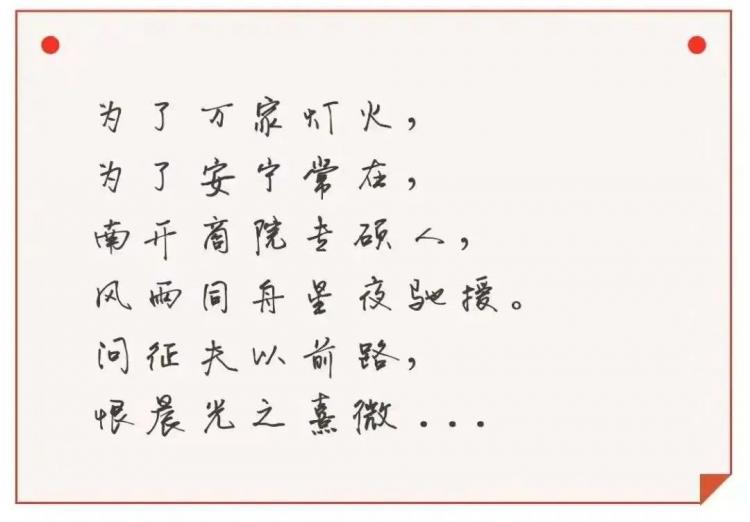 为了万家灯火，
为了安宁常在，
南开商院专硕人，
风雨同舟星夜驰援。
问征夫以前路，
恨晨光之熹微...